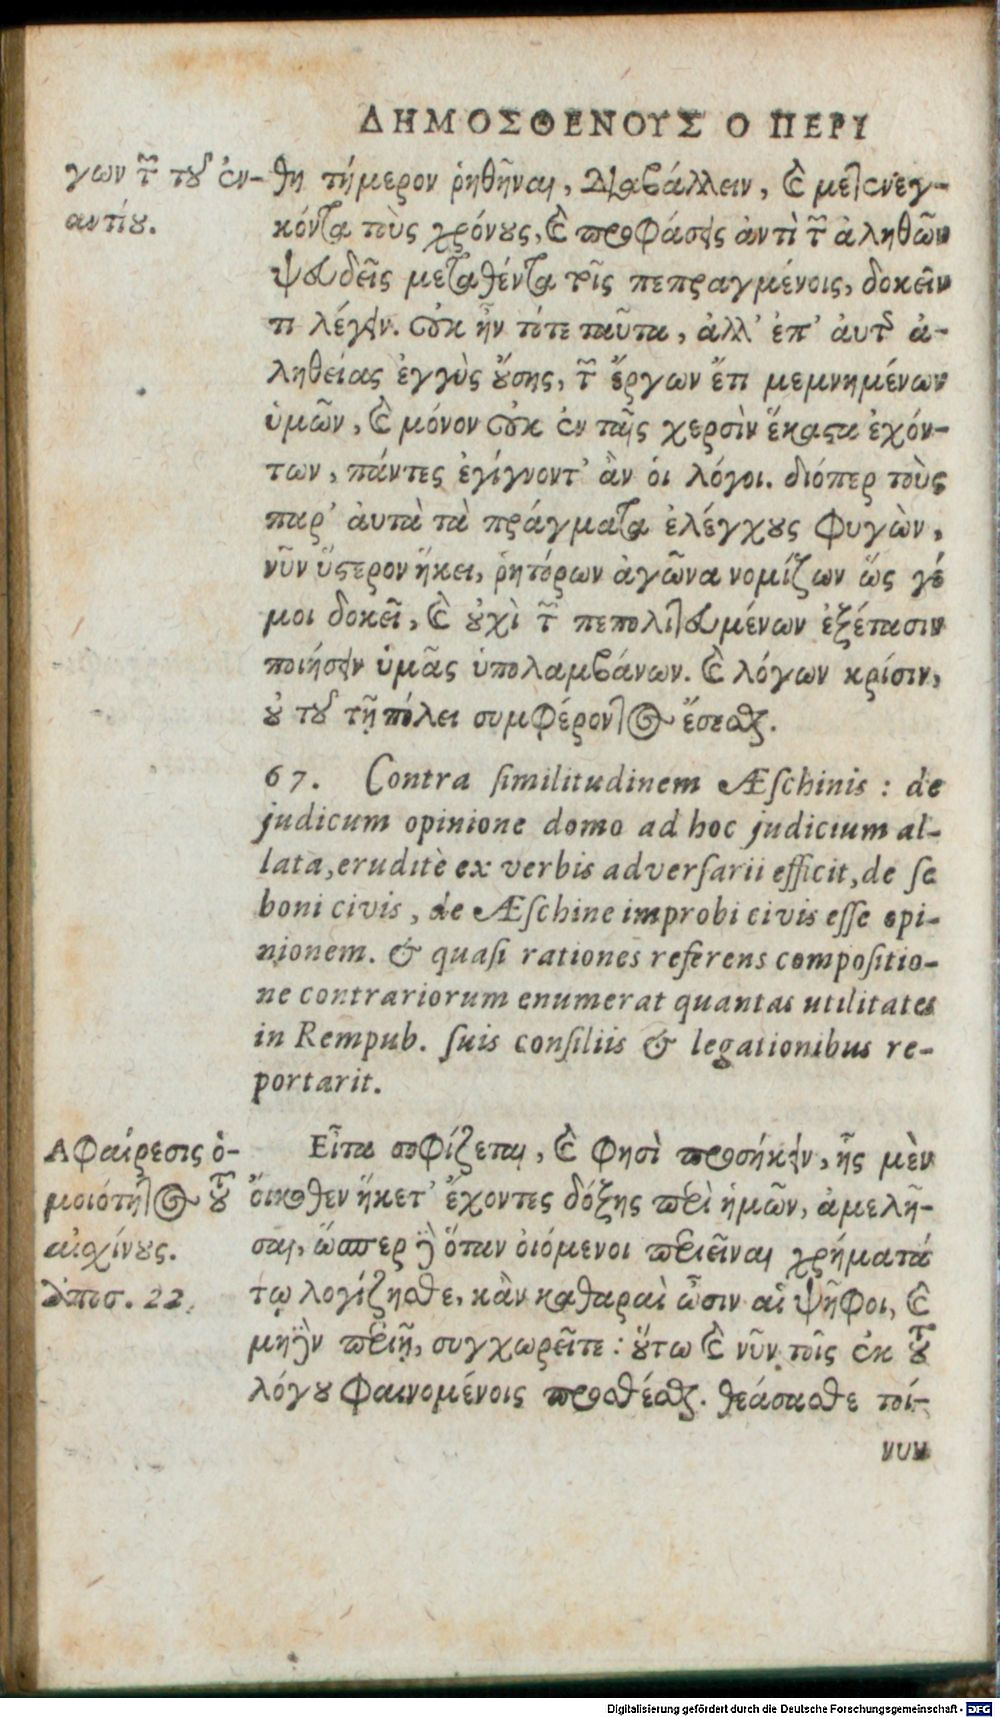 ΔΗΜΟΣΘΕΝΟΥΣ Ο ΠΕΡΙ
γων τῶν τοῦ ἐν-
αντίου.
θη τήμερον ῥηθῆναι, διαβάλλειν, καὶ μετενεγ-
κόντα τοὺς χρόνους, καὶ προφάσεις ἀντὶ τῶν ἀληθῶν
ψευδεῖς μεταθέντα τοῖς πεπραγμένοις, δοκεῖν
τι λέγειν. οὐκ ἦν τότε ταῦτα, ἀλλ' ἐπ' αὐτῆς ἀ-
ληθείας ἐγγὺς οὔσης, τῶν ἔργων ἔτι μεμνημένων
ὑμῶν, καὶ μόνον οὐκ ἐν ταῖς χερσὶν ἕκαστα ἐχόν-
των, πάντες ἐγίγνοντ' ἂν οἱ λόγοι. διόπερ τοὺς
παρ' αὐτὰ τὰ πράγματα ἐλέγχους φυγὼν,
νῦν ὕστερον ἥκει, ῥητόρων ἀγῶνα νομίζων ὥς γέ
μοι δοκεῖ, καὶ οὐχὶ τῶν πεπολιτευμένων ἐξέτασιν
ποιήσειν ὑμᾶς ὑπολαμβάνων. καὶ λόγων κρίσιν,
οὐ τοῦ τῇ πόλει συμφέροντος ἔσεσθαι.
67. Contra similitudinem Æschinis: de
judicum opinione domo ad hoc judicium al-
lata, eruditè ex verbis adversarii efficit, de se
boni civis, de Æschine improbi civis esse opi-
nionem. & quasi rationes referens compositio-
ne contrariorum enumerat quantas utilitates
in Rempub. suis consiliis & legationibus re-
portarit.
Ἀφαίρεσις ὁ-
μοιότητος τοῦ
αἰσχίνους.
ὑποσ. 22.
Εἶτα σοφίζεται, καὶ φησὶ προσήκειν, ἧς μὲν
οἴκοθεν ἥκετ' ἔχοντες δόξης περὶ ἡμῶν, ἀμελῆ-
σαι, ὥσπερ δὲ ὅταν οἰόμενοι περιεῖναι χρήματά
τῳ λογίζησθε, κἂν καθαραὶ ὦσιν αἱ ψῆφοι, καὶ
μηδὲν περιῇ, συγχωρεῖτε: οὕτω καὶ νῦν τοῖς ἐκ τοῦ
λόγου φαινομένοις προσθέσθαι. θεάσασθε τοί-
νυν
Digitalisierung gefördert durch die Deutsche Forschungsgemeinschaft - DFG